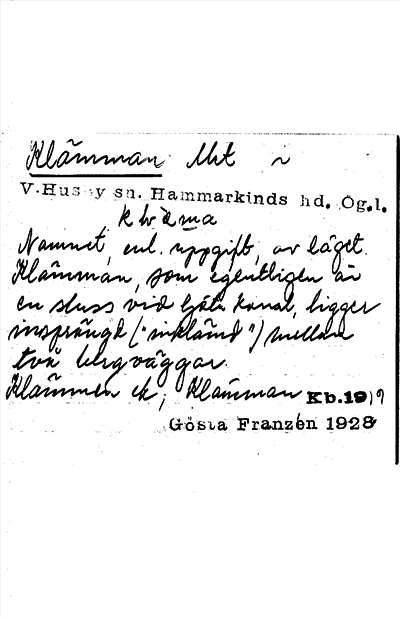 Klämman Mt ~
V.Husby sn. Hammarkinds hd. Ög.l.
Namnet, enl. uppgift, av läget.
Klämman, som egentligen är
en sluss vid Göta kanal, ligger
insprängd ("inklämd") mellan
två bergväggar.
Klämmen ek; Klämman Kb.19
Gösta Franzén 1928